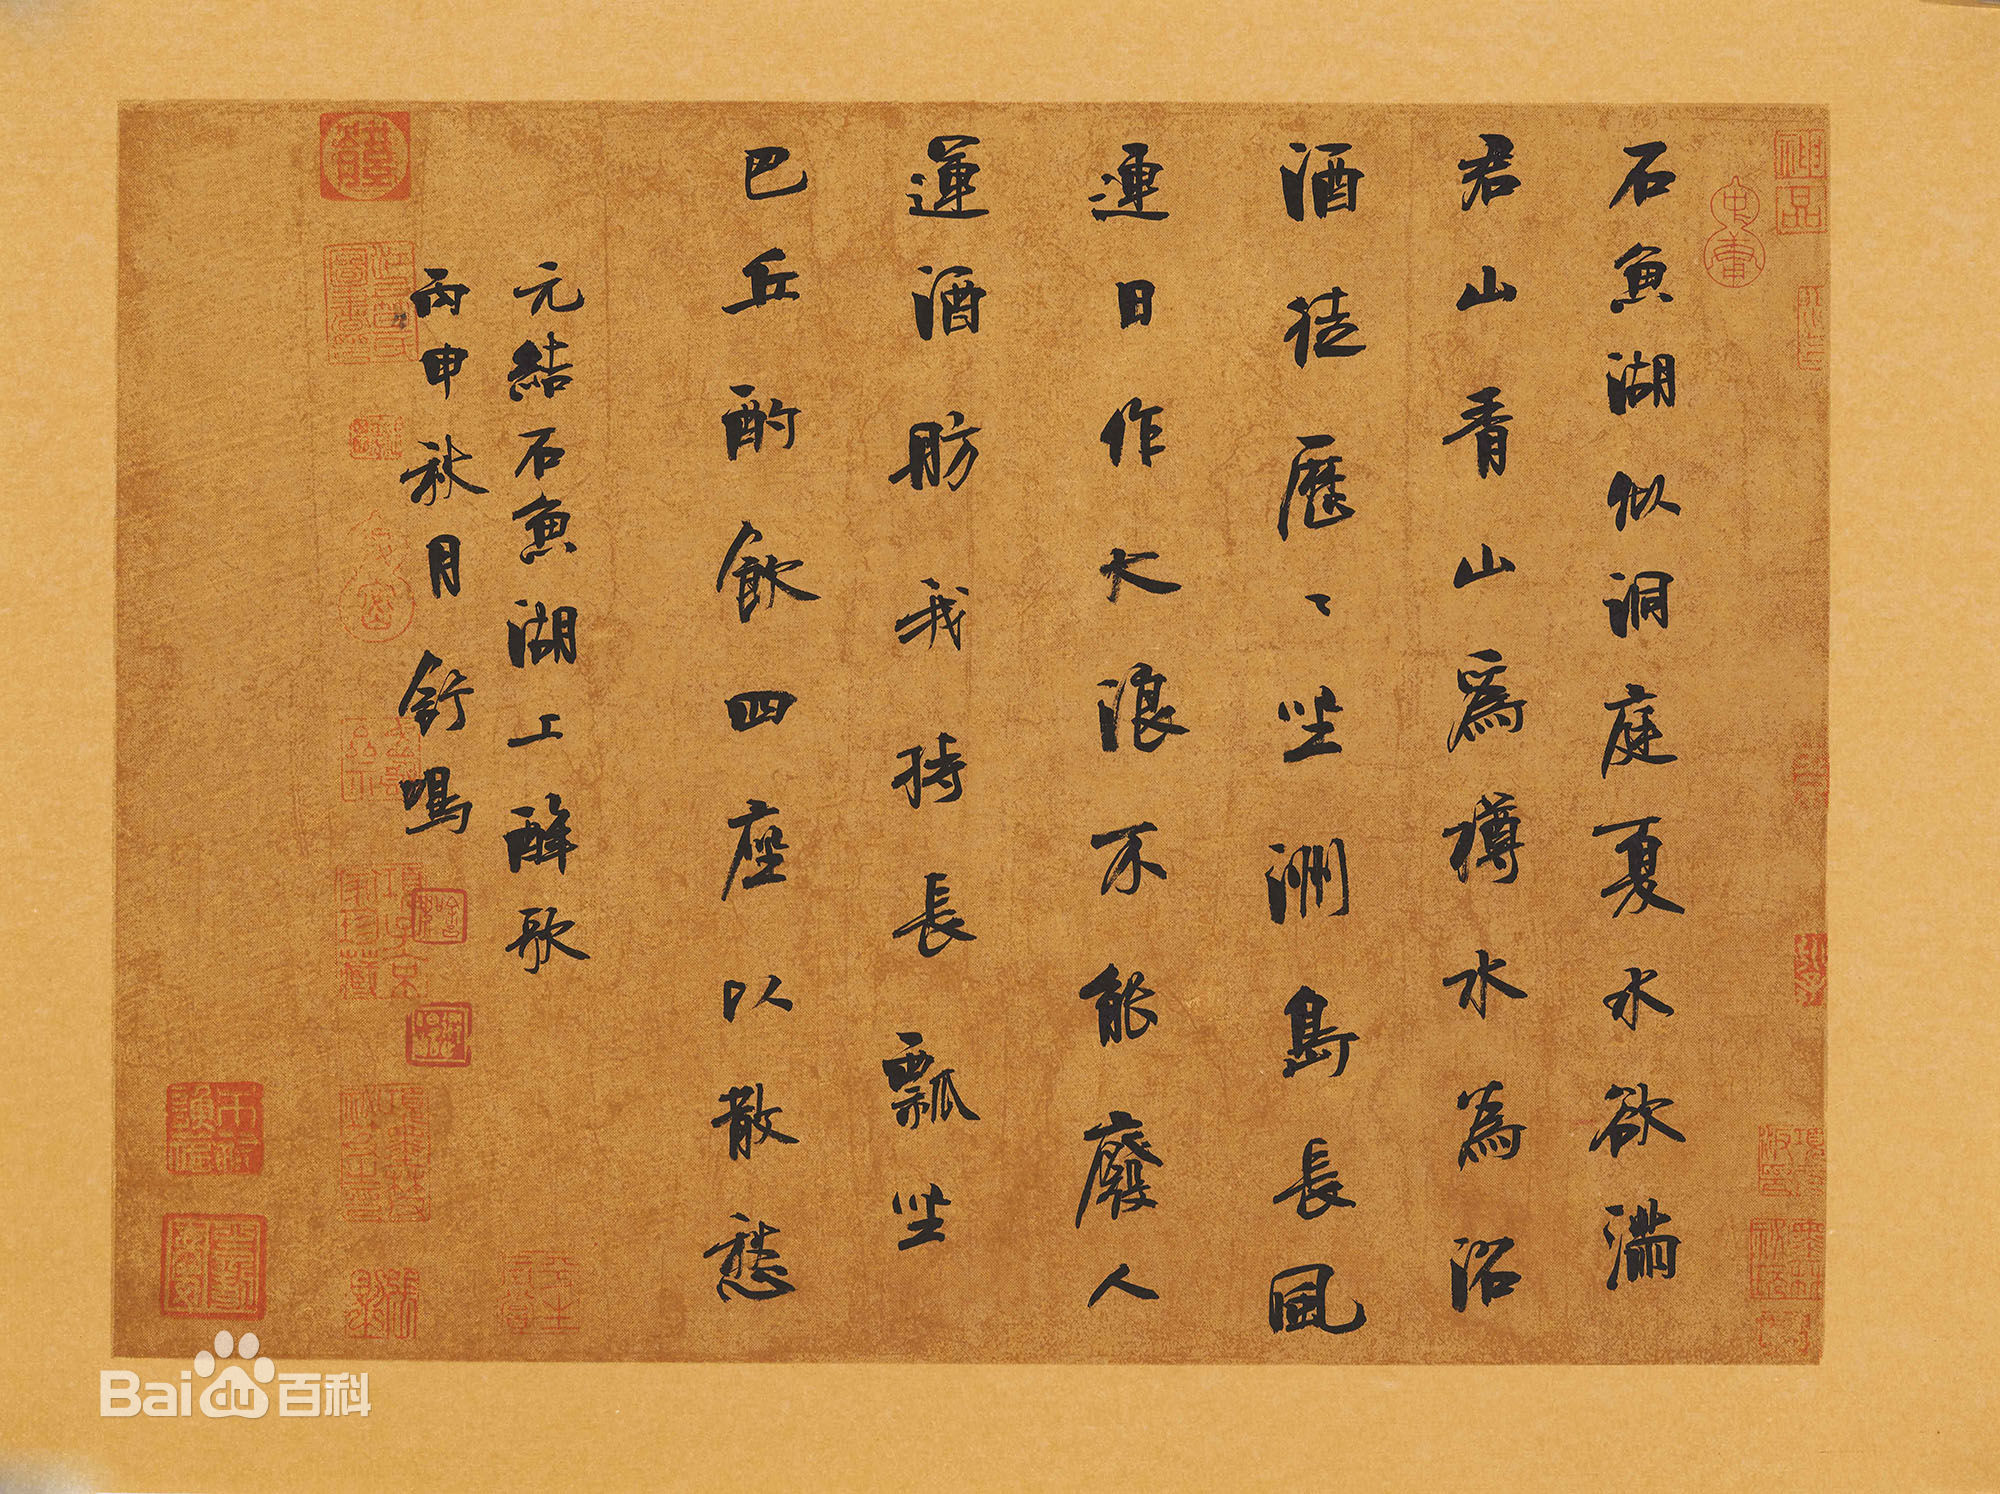 石魚湖似洞庭夏水欲滿
君山青山爲樽水為沼
酒徒歷〻坐洲島長風
連日作大浪不能廢人
運酒舫我持長瓢坐
巴丘酌飲四座以散愁
元結石魚湖上醉歌
丙申秋月 舒鳴
神品
項子京家珍藏
Bai du 百科